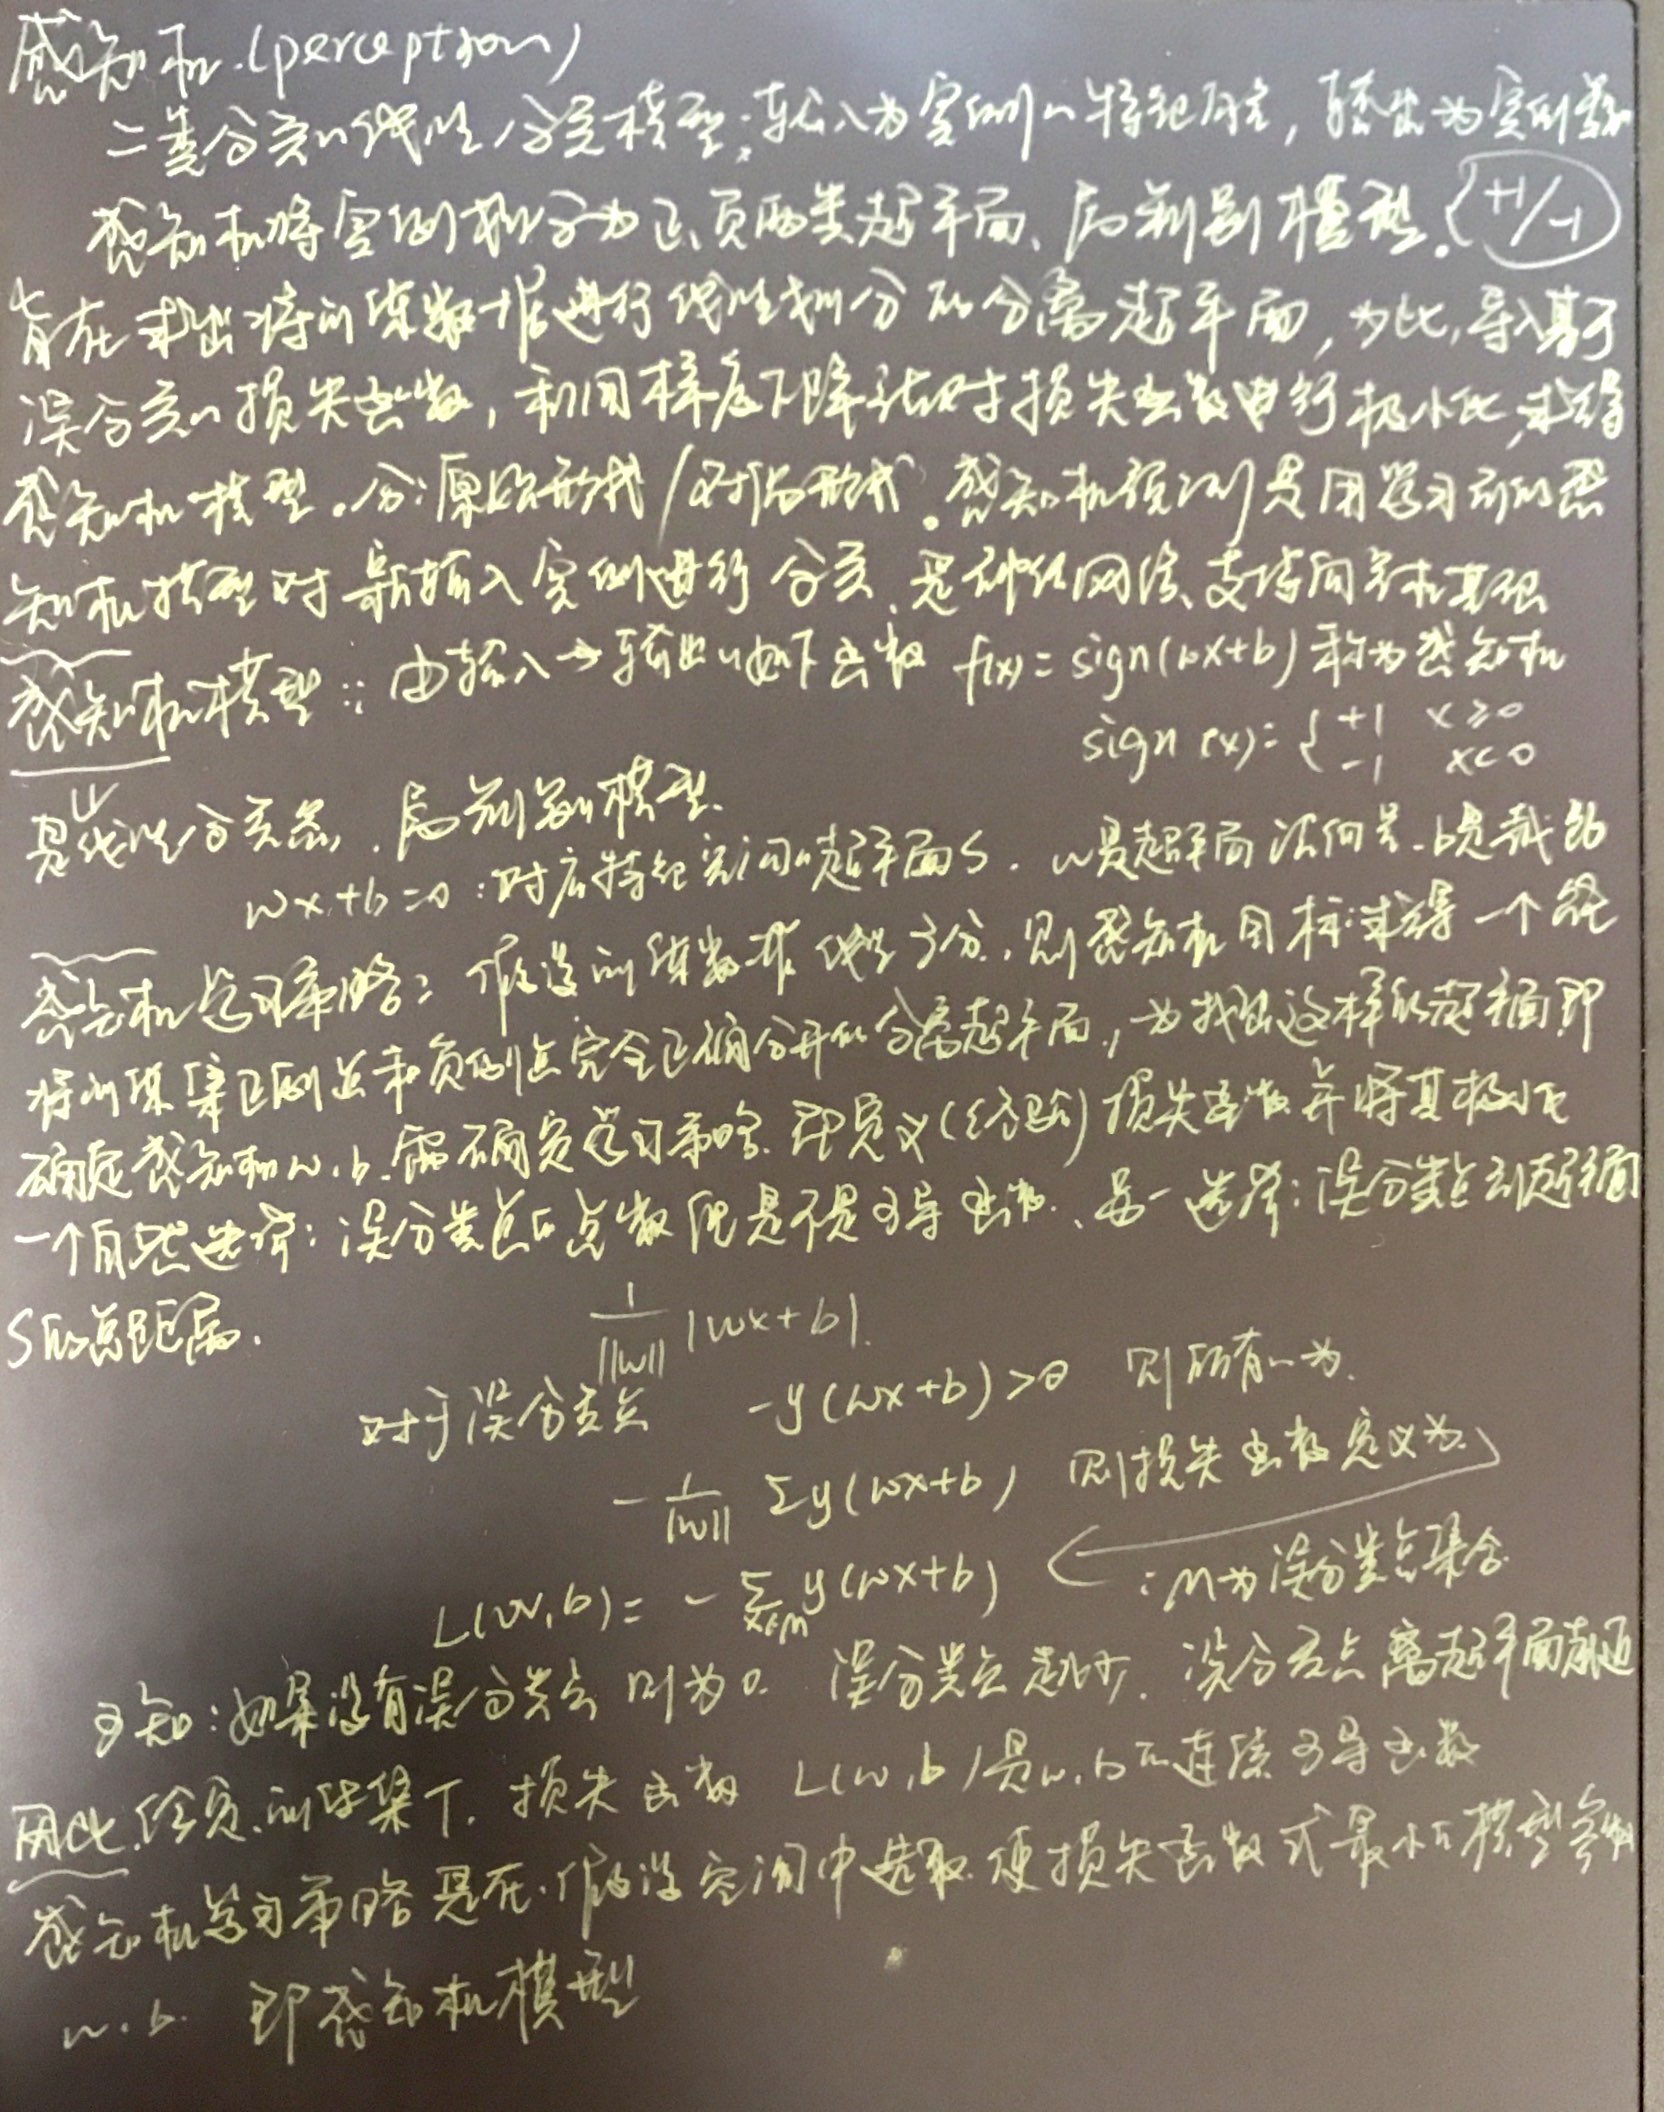 感知机.(perceptron)
二类分类的线性分类模型;输入为实例的特征向量,输出为实例类别
感知机将实例划分为正、负两类超平面、属判别模型.{+1/-1
旨在求出将训练数据进行线性划分的分离超平面,为此,导入基于
误分类的损失函数,利用梯度下降法对损失函数进行极小化,求得
感知机模型。分:原始形式/对偶形式。感知机预测是用学习所的感
知机模型对新输入实例进行分类、是神经网络、支持向量机基础
感知机模型:: 由输入→输出的如下函数 f(x)=sign(wx+b)称为感知机
sign(x)={ +1 x≥0
-1 x<0
是线性分类器,.属判别模型.
wx+b=0:对应特征空间的超平面S. w是超平面法向量.b是截距
感知机学习策略:假设训练数据线性可分.则感知机目标:求得一个能
将训练集正例点和负例点完全正确分开的分离超平面,为找出这样的超平面即
确定感知机w.b.需确定学习策略.即定义(经验)损失函数并将其极小化
一个自然选择:误分类点的点数但是不是可导函数.、另一选择:误分类点到超平面
S的总距离.
1/||w|| |wx+b|.
对于误分类点 -y(wx+b)>0 则所有的为.
-1/||w|| Σy(wx+b) 则损失函数定义为.
L(w,b)= - Σ x∈M y(wx+b) :M为误分类点集合.
可知:如果没有误分类点则为0. 误分类点越少.误分类点离超平面越近
因此.给定.训练集T.损失函数 L(w,b)是w.b的连续可导函数
感知机学习策略是在.假设空间中选取.使损失函数式最小的模型参数
w.b. 即感知机模型